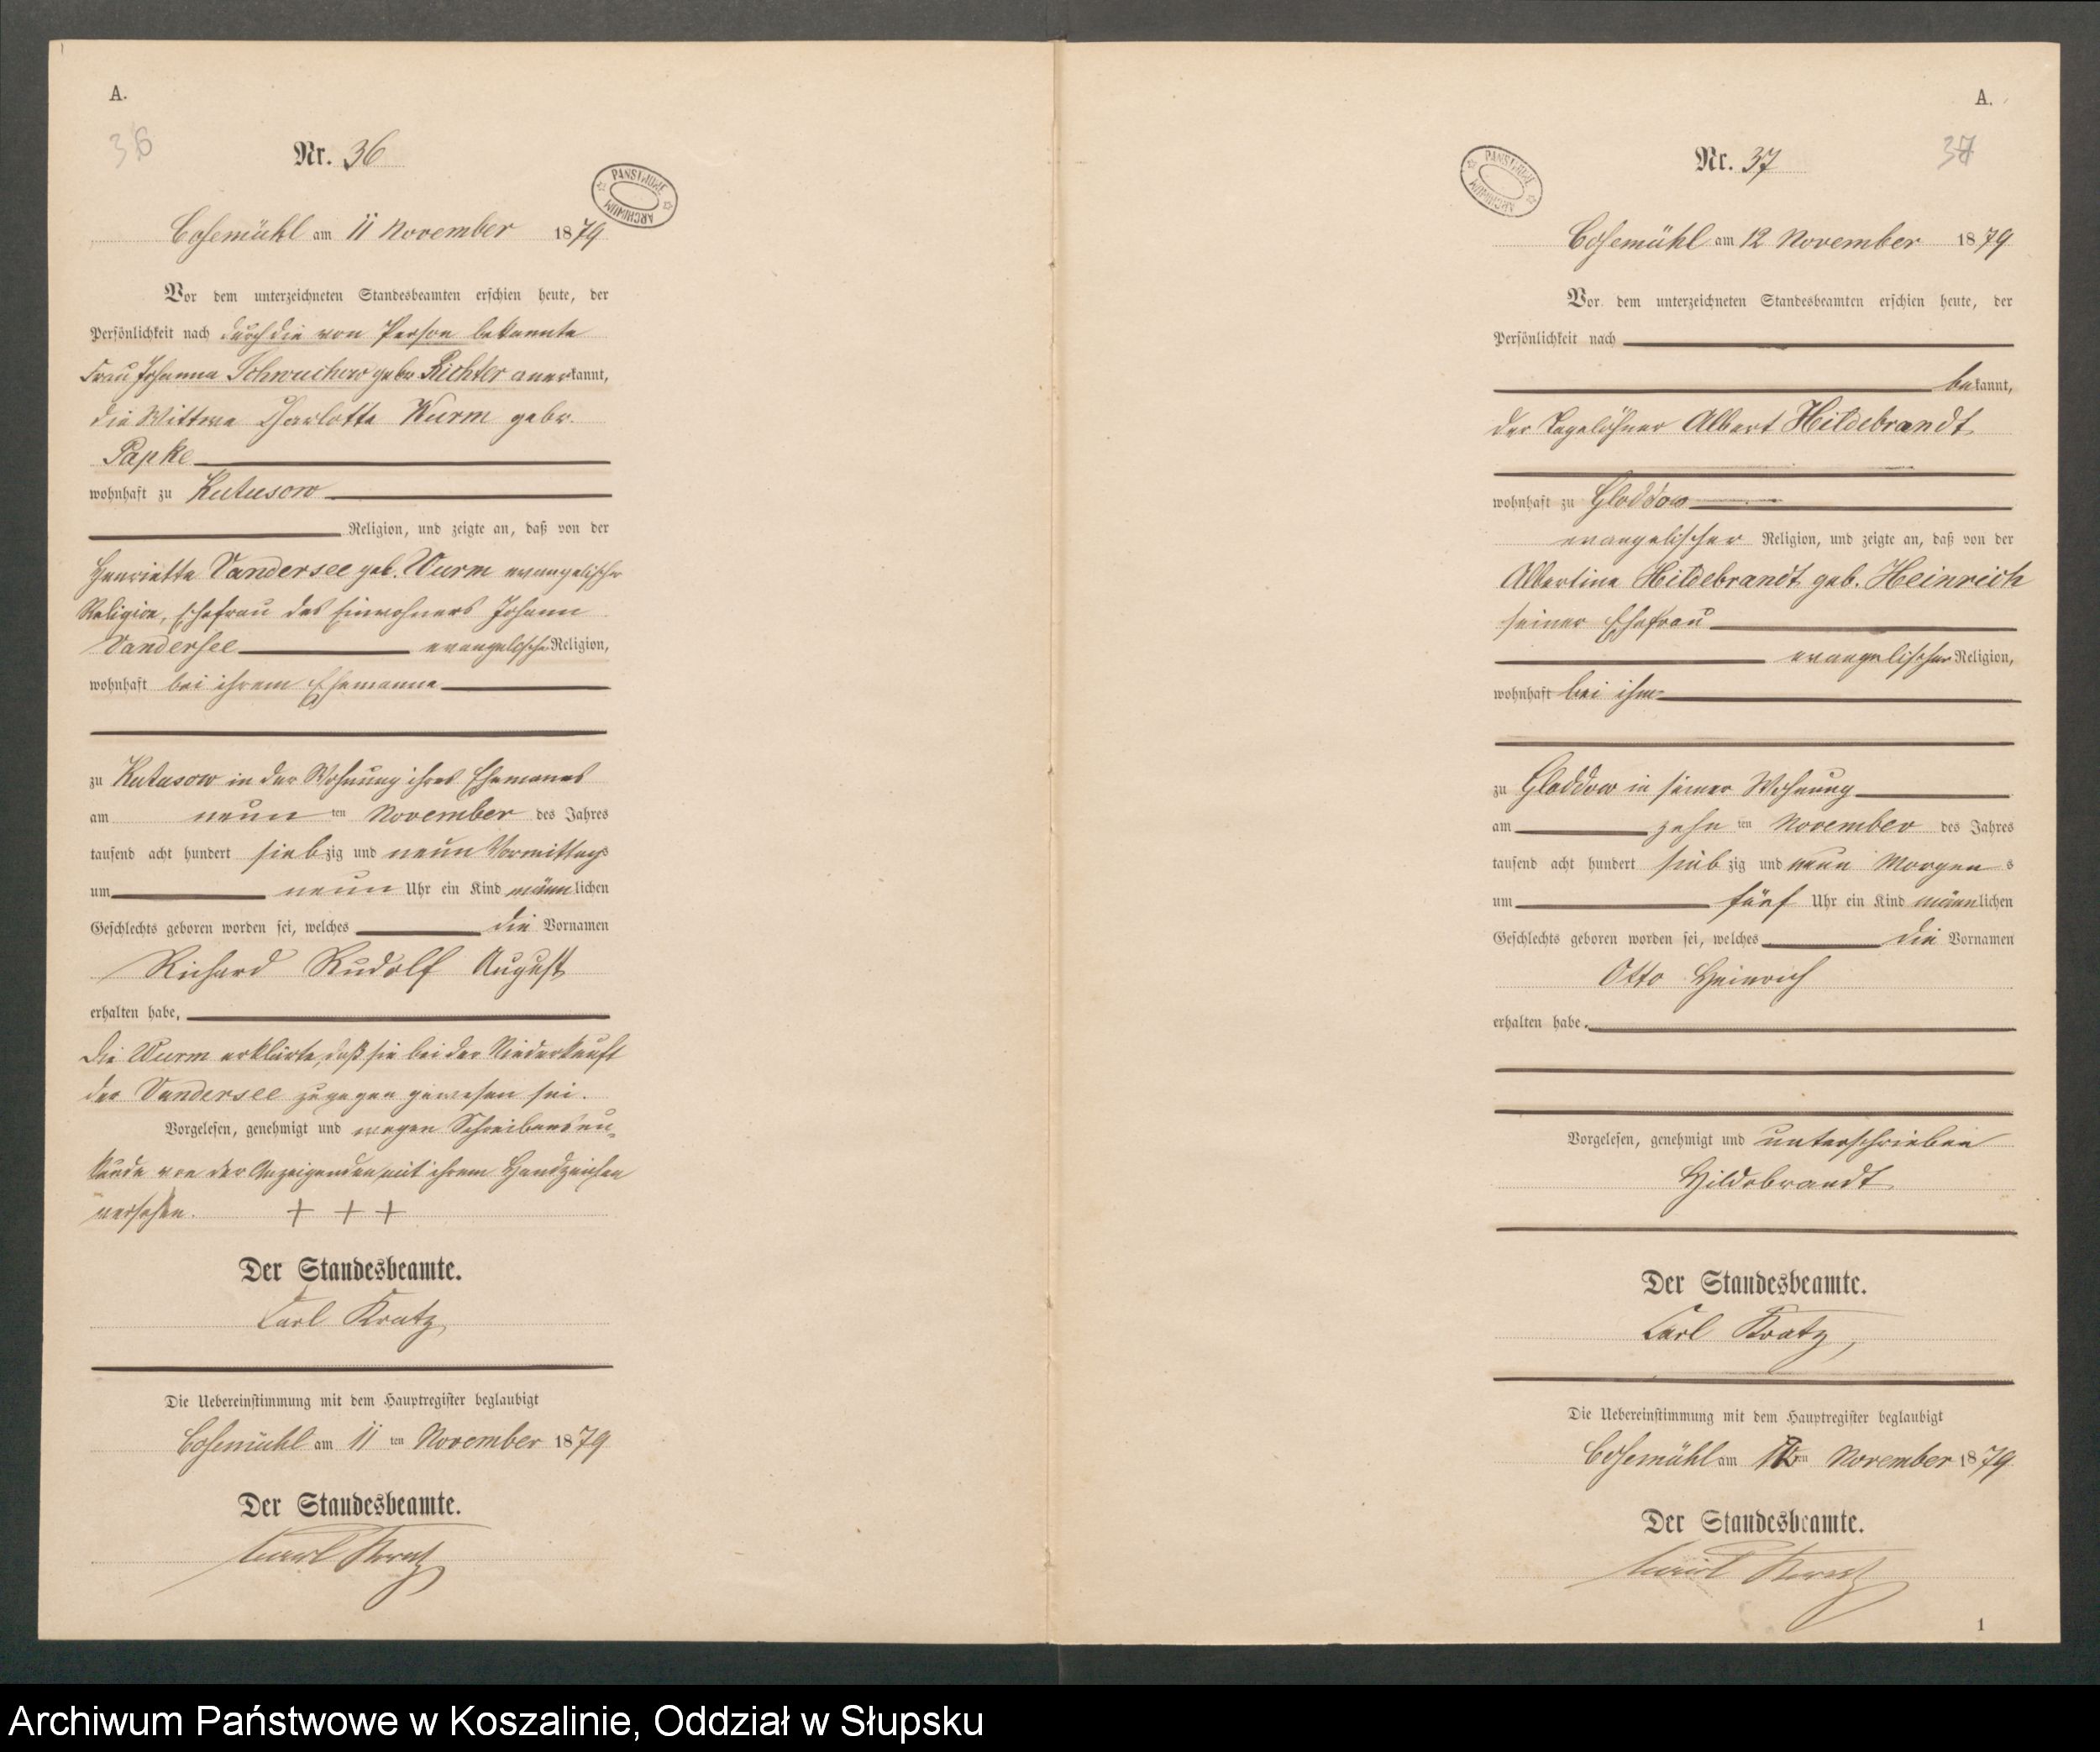 A.
36
Nr. 36
PANSTWOWE ARCHIWUM
Cosemühl am 11 November 1879
Vor dem unterzeichneten Standesbeamten erschien heute, der
Persönlichkeit nach durch die von Person bekannte
Frau Johanna Schwuchow gebr. Richter anerkannt,
die Wittwe Charlotte Wurm gebr.
Papke
wohnhaft zu Kutusow
Religion, und zeigte an, daß von der
Henriette Vandersee geb. Wurm evangelischer
Religion, Ehefrau des Einwohners Johann
Vandersee evangelische Religion,
wohnhaft bei ihrem Ehemanne
zu Kutusow in der Wohnung ihres Ehemanes
am neun ten November des Jahres
tausend acht hundert siebzig und neun Vormittags
um neun Uhr ein Kind männlichen
Geschlechts geboren worden sei, welches die Vornamen
Richard Rudolf August
erhalten habe,
Die Wurm erklärte, daß sie bei der Niederkunft
der Vandersee zugegen gewesen sei.
Vorgelesen, genehmigt und wegen Schreibensun-
kunde von der Anzeigenden mit ihrem Handzeichen
versehen. + + +
Der Standesbeamte.
Carl Kratz
Die Uebereinstimmung mit dem Hauptregister beglaubigt
Cosemühl am 11 ten November 1879
Der Standesbeamte.
Carl Kratz
A.
37
Nr. 37
PANSTWOWE ARCHIWUM
Cosemühl am 12 November 1879
Vor dem unterzeichneten Standesbeamten erschien heute, der
Persönlichkeit nach
bekannt,
der Tagelöhner Albert Hildebrandt
wohnhaft zu Gloddow
evangelischer Religion, und zeigte an, daß von der
Albertine Hildebrandt geb. Heinrich
seiner Ehefrau
evangelischer Religion,
wohnhaft bei ihm
zu Gloddow in seiner Wohnung
am zehn ten November des Jahres
tausend acht hundert siebzig und neun Morgens
um fünf Uhr ein Kind männlichen
Geschlechts geboren worden sei, welches die Vornamen
Otto Heinrich
erhalten habe.
Vorgelesen, genehmigt und unterschrieben
Hildebrandt
Der Standesbeamte.
Carl Kratz
Die Uebereinstimmung mit dem Hauptregister beglaubigt
Cosemühl am 12 ten November 1879
Der Standesbeamte.
Carl Kratz
1
Archiwum Państwowe w Koszalinie, Oddział w Słupsku